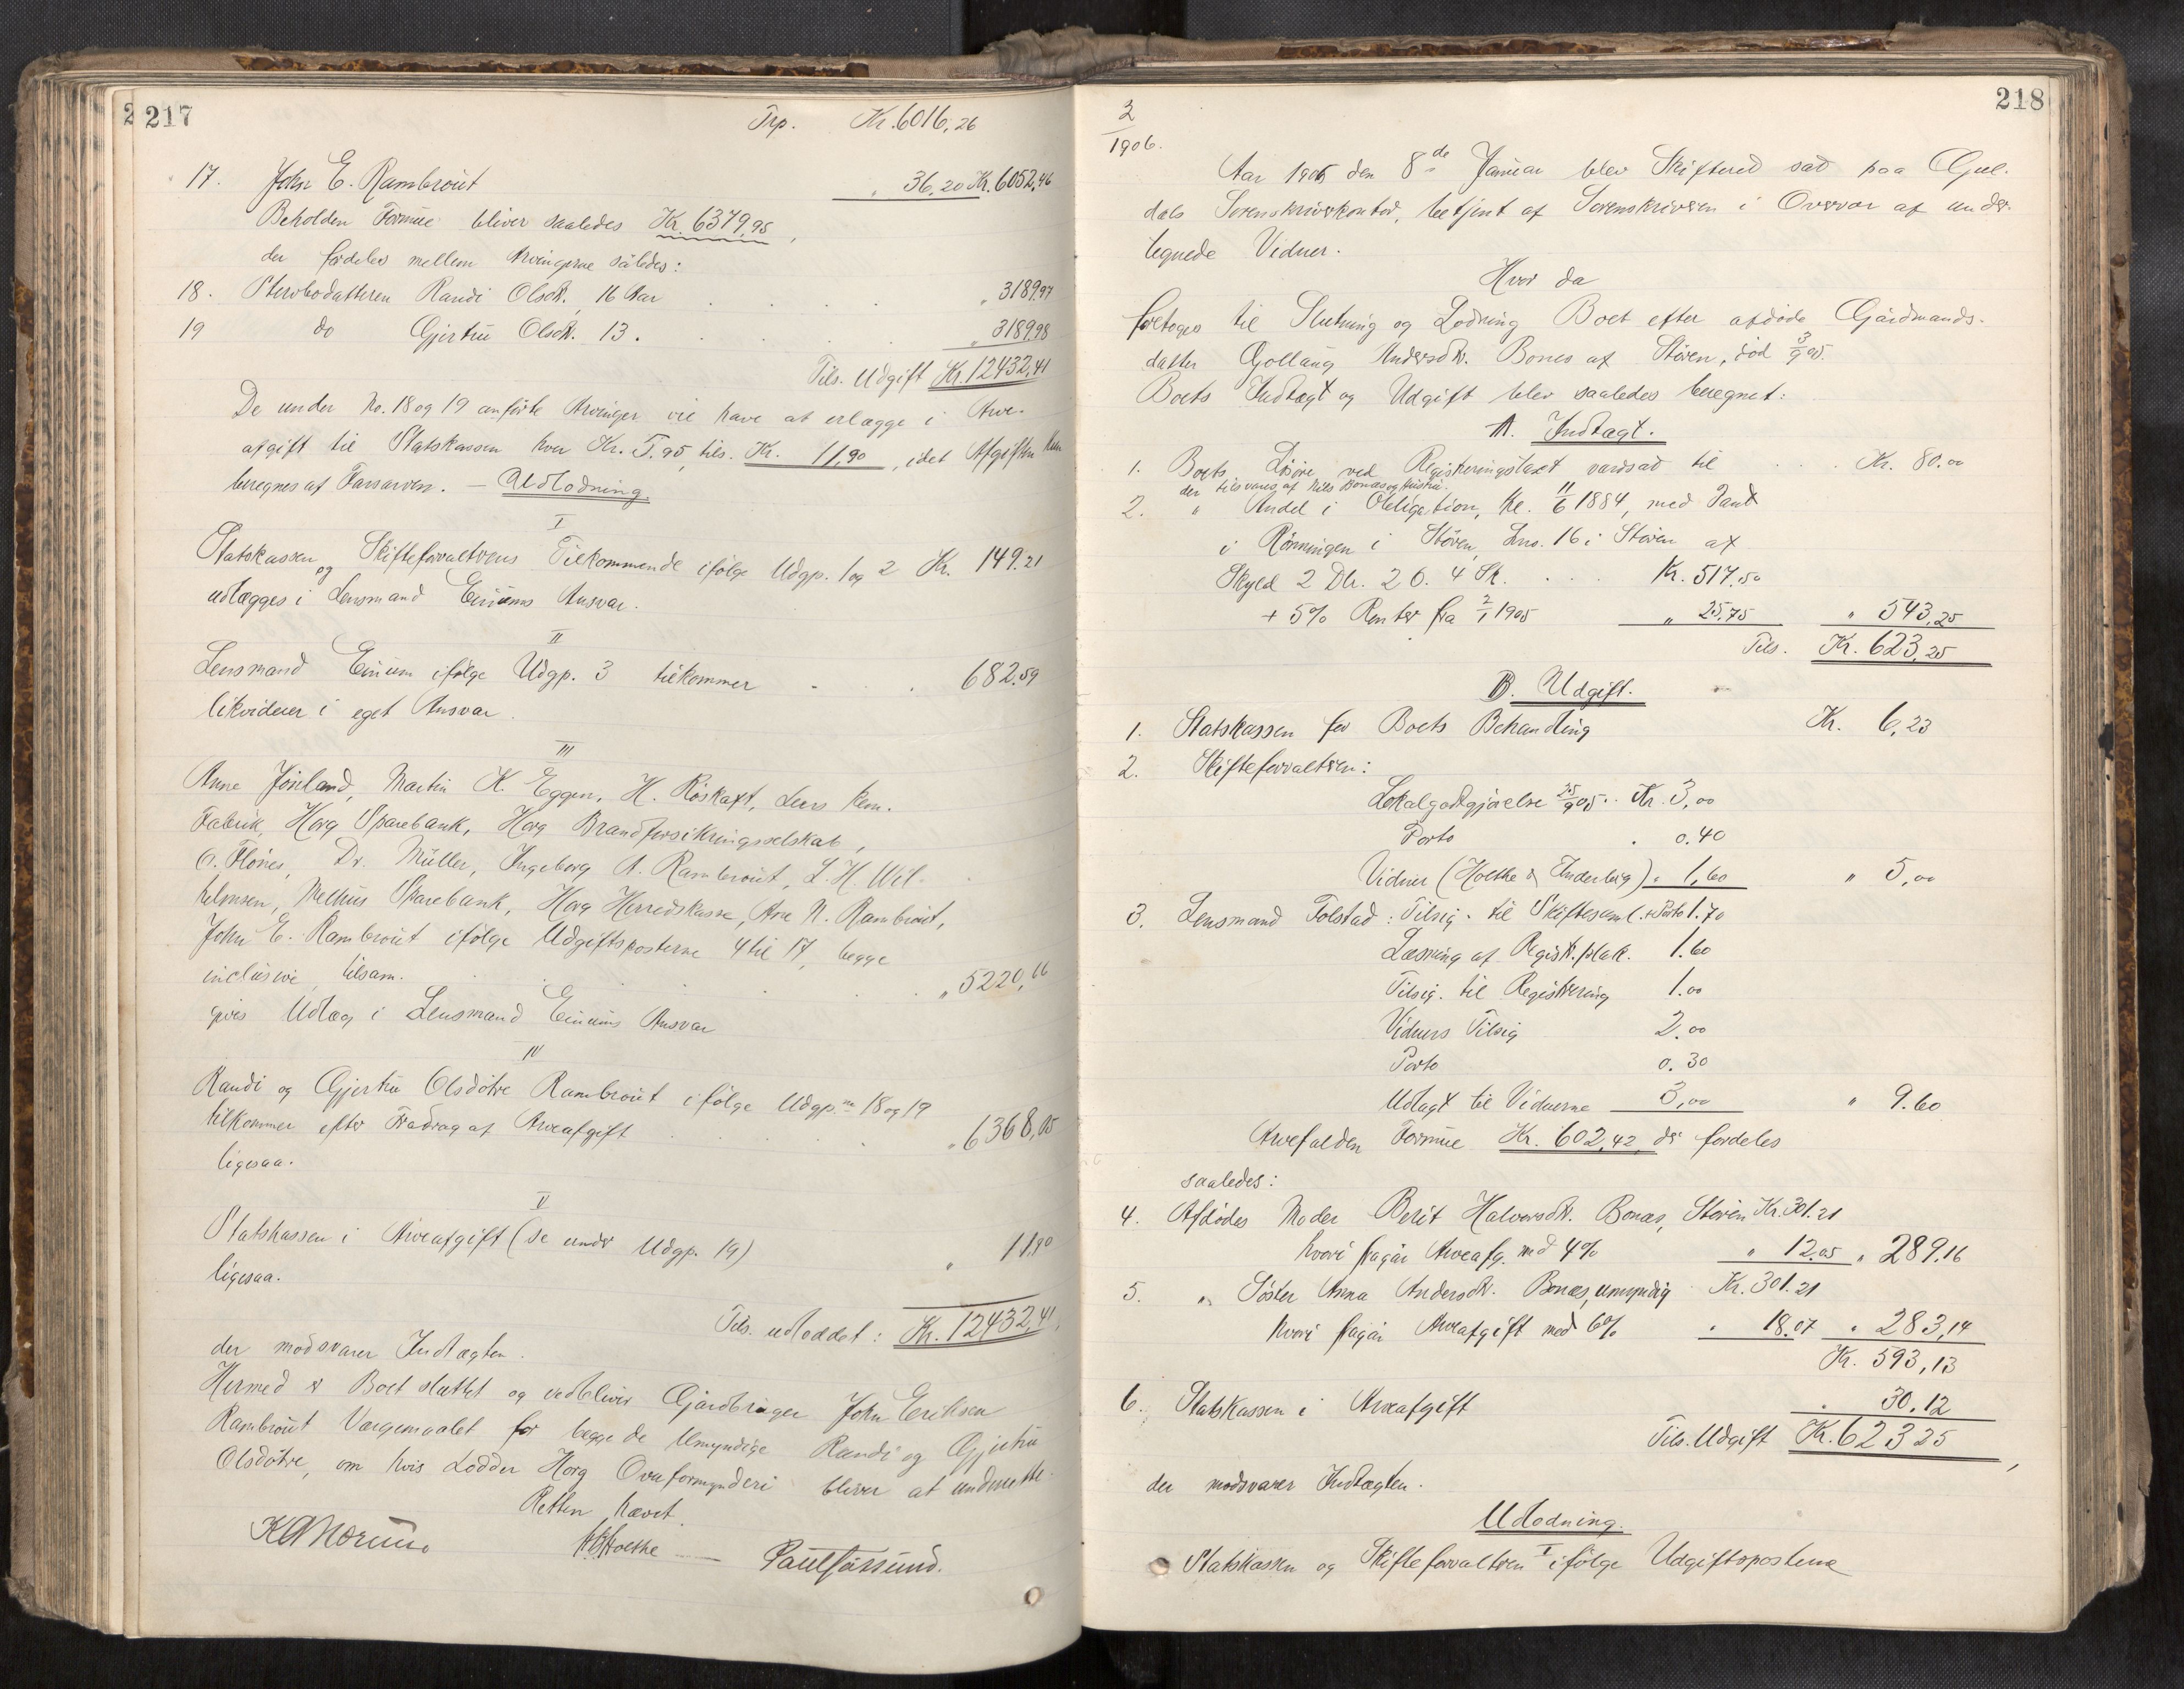 217
Trp. Kr. 6016,26
17. John E. Rambrout " 36,20 Kr. 6052,46
Beholden Formue bliver saaledes Kr. 6379,95,
der fordeles mellem Arvingerne således:
18. Stervbodatteren Randi Olsdt., 16 Aar . . . " 3189,97
19 do Gjertru Olsdt. 13. . . . " 3189,98
Tils. Udgift Kr. 12432,41
De under No. 18 og 19 anførte Arvinger vil have at erlægge i Arve-
afgift til Statskassen hver Kr. 5.95, tils. Kr. 11,90, idet Afgiften kun
beregnes af Farsarven. — Udlodning.
I
Statskassen og Skifteforvalterens Tilkommende ifølge Udgp. 1 og 2 Kr. 149.21
udlægges i Lensmand Eniums Ansvar.
II
Lensmand Enium ifølge Udgp. 3 tilkommer . . 682.59
likviderer i eget Ansvar.
III
Anne Joriland, Martin K. Eggen, H. Röskaft, Lers kem.
Fabrik, Horg Sparebank, Horg Brandforsikringsselskab,
O. Flönes, Dr. Müller, Ingeborg A. Rambrout, L. H. Wil-
helmsen, Melhus Sparebank, Horg Herredskasse, Arn N. Rambrout,
John E. Rambrout ifølge Udgiftsposterne 4 til 17, begge
inclusive, tilsam. . . . . " 5220,66
gives Udlæg i Lensmand Eniums Ansvar
IV
Randi og Gjertru Olsdötre Rambrout ifølge Udgp. 18 og 19
tilkommer efter Fradrag af Arveafgift . . . " 6368,05
ligesaa.
V
Statskassen i Arveafgift (se under Udgp. 19) " 11,90
ligesaa.
Tils. udloddet: Kr. 12432,41,
der modsvarer Indtægten.
Hermed er Boet sluttet og vedbliver Gårdbruger John Eriksen
Rambrout Værgemaalet for begge de Umyndige Randi og Gjertru
Olsdötre, om hvis Lodder Horg Overformynderi bliver at underrette.
Retten hævet.
Holthe — Paul Jörsund.
218
2/1906.
Aar 1906 den 8de Januar blev Skifteret sat paa Gul-
dals Sorenskriverkontor, betjent af Sorenskriveren i Overvær af under-
tegnede Vidner.
Hvor da
foretoges til Slutning og Lodning Boet efter afdöde Gårdmands-
datter Gollaug Andersdtr. Bones af Stören, död 3/9 05.
Boets Indtægt og Udgift blev saaledes beregnet:
A. Indtægt.
1. Boets Lösöre ved Registreringstaxt vardsat til . . . Kr. 80.00
der tilsvares af Nils Bonæs og Hustru.
2. " Andel i Obligation, Kr. 11/6 1884, med Pant
i Rönningen i Stören, Lno. 16 i Stören af
Skyld 2 Dlr. 2 O. 4 Sk. . . . Kr. 517.50
+ 5% Renter fra 2/1 1905 " 25,75 " 543,25
Tils. Kr. 623,25
B. Udgift.
1. Statskassen for Boets Behandling Kr. 6,23
2. Skifteforvalteren:
Lokalgodtgjørelse 25/9 05.. Kr. 3,00
Porto . 0.40
Vidner (Holthe & Enderberg) " 1,60 " 5,00
3. Lensmand Folstad: Tilsig. til Skiftesaml. + Porto 1.70
Læsning af Registr.plak. 1.60
Tilsig. til Registrering 1.00
Vidners Tilsig 2.00
Porto 0.30
Udlagt til Vidnerne 3,00 " 9.60
Arvefalden Formue Kr. 602,42, der fordeles
saaledes:
4. Afdödes Moder Berit Halvorsdtr. Bonæs, Stören Kr. 301.21
hvori fragår Arveafg. med 4% " 12.05 " 289,16
5. " Söster Anna Andersdtr. Bonæs, umyndig Kr. 301.21
hvori fragår Arveafgift med 6% " 18.07 " 283,14
Kr. 593,13
6. Statskassen i Arveafgift . 30.12
Tils. Udgift Kr. 623 25,
der modsvarer Indtægten.
Udlodning.
I
Statskassen og Skifteforvalteren ifølge Udgiftsposterne